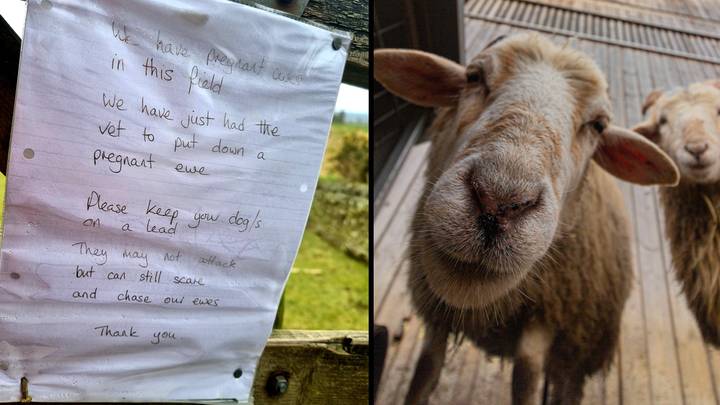 We have pregnant ewes
in this field
We have just had the
vet to put down a
pregnant ewe
Please keep your dog/s
on a lead
They may not attack
but can still scare
and chase our ewes
Thank you